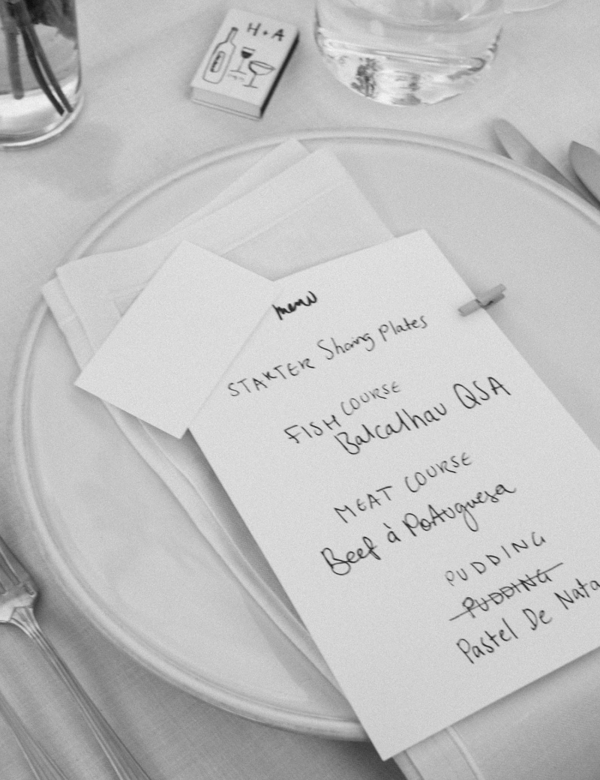 H+A
menu
STARTER Sharing Plates
FISH COURSE
Balcalhau QSA
MEAT COURSE
Beef à Portuguesa
PUDDING
PUDDING
Pastel De Nata